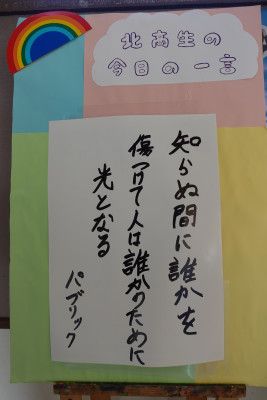 北高生の
今日の一言
知らぬ間に誰かを
傷つけて人は誰かのために
光となる
パブリック